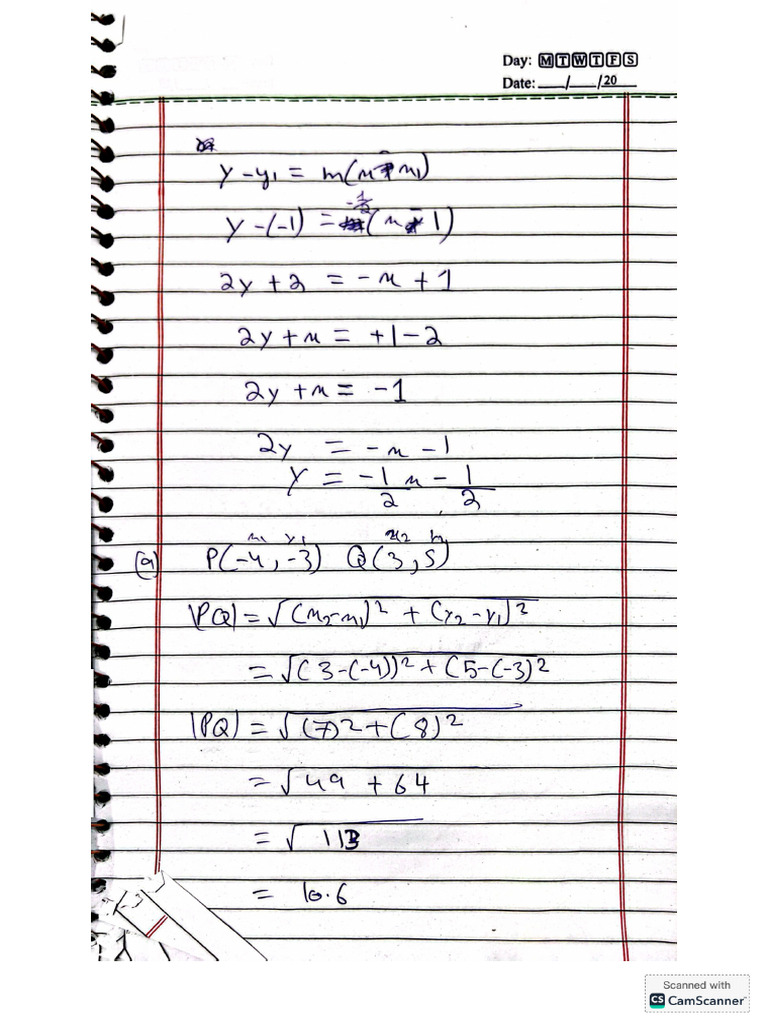 Day: M T W T F S
Date: ___/___/20
y - y₁ = m(x - x₁)
y - (-1) = -1/2 (x - 1)
2y + 2 = -x + 1
2y + x = +1 - 2
2y + x = -1
2y = -x - 1
y = -1/2 x - 1/2
x₁ y₁ x₂ y₂
(a) P(-4, -3) Q(3, 5)
|PQ| = √(x₂-x₁)² + (y₂-y₁)²
= √(3-(-4))² + (5-(-3)²
|PQ| = √(7)² + (8)²
= √49 + 64
= √113
= 10.6
Scanned with
CS CamScanner